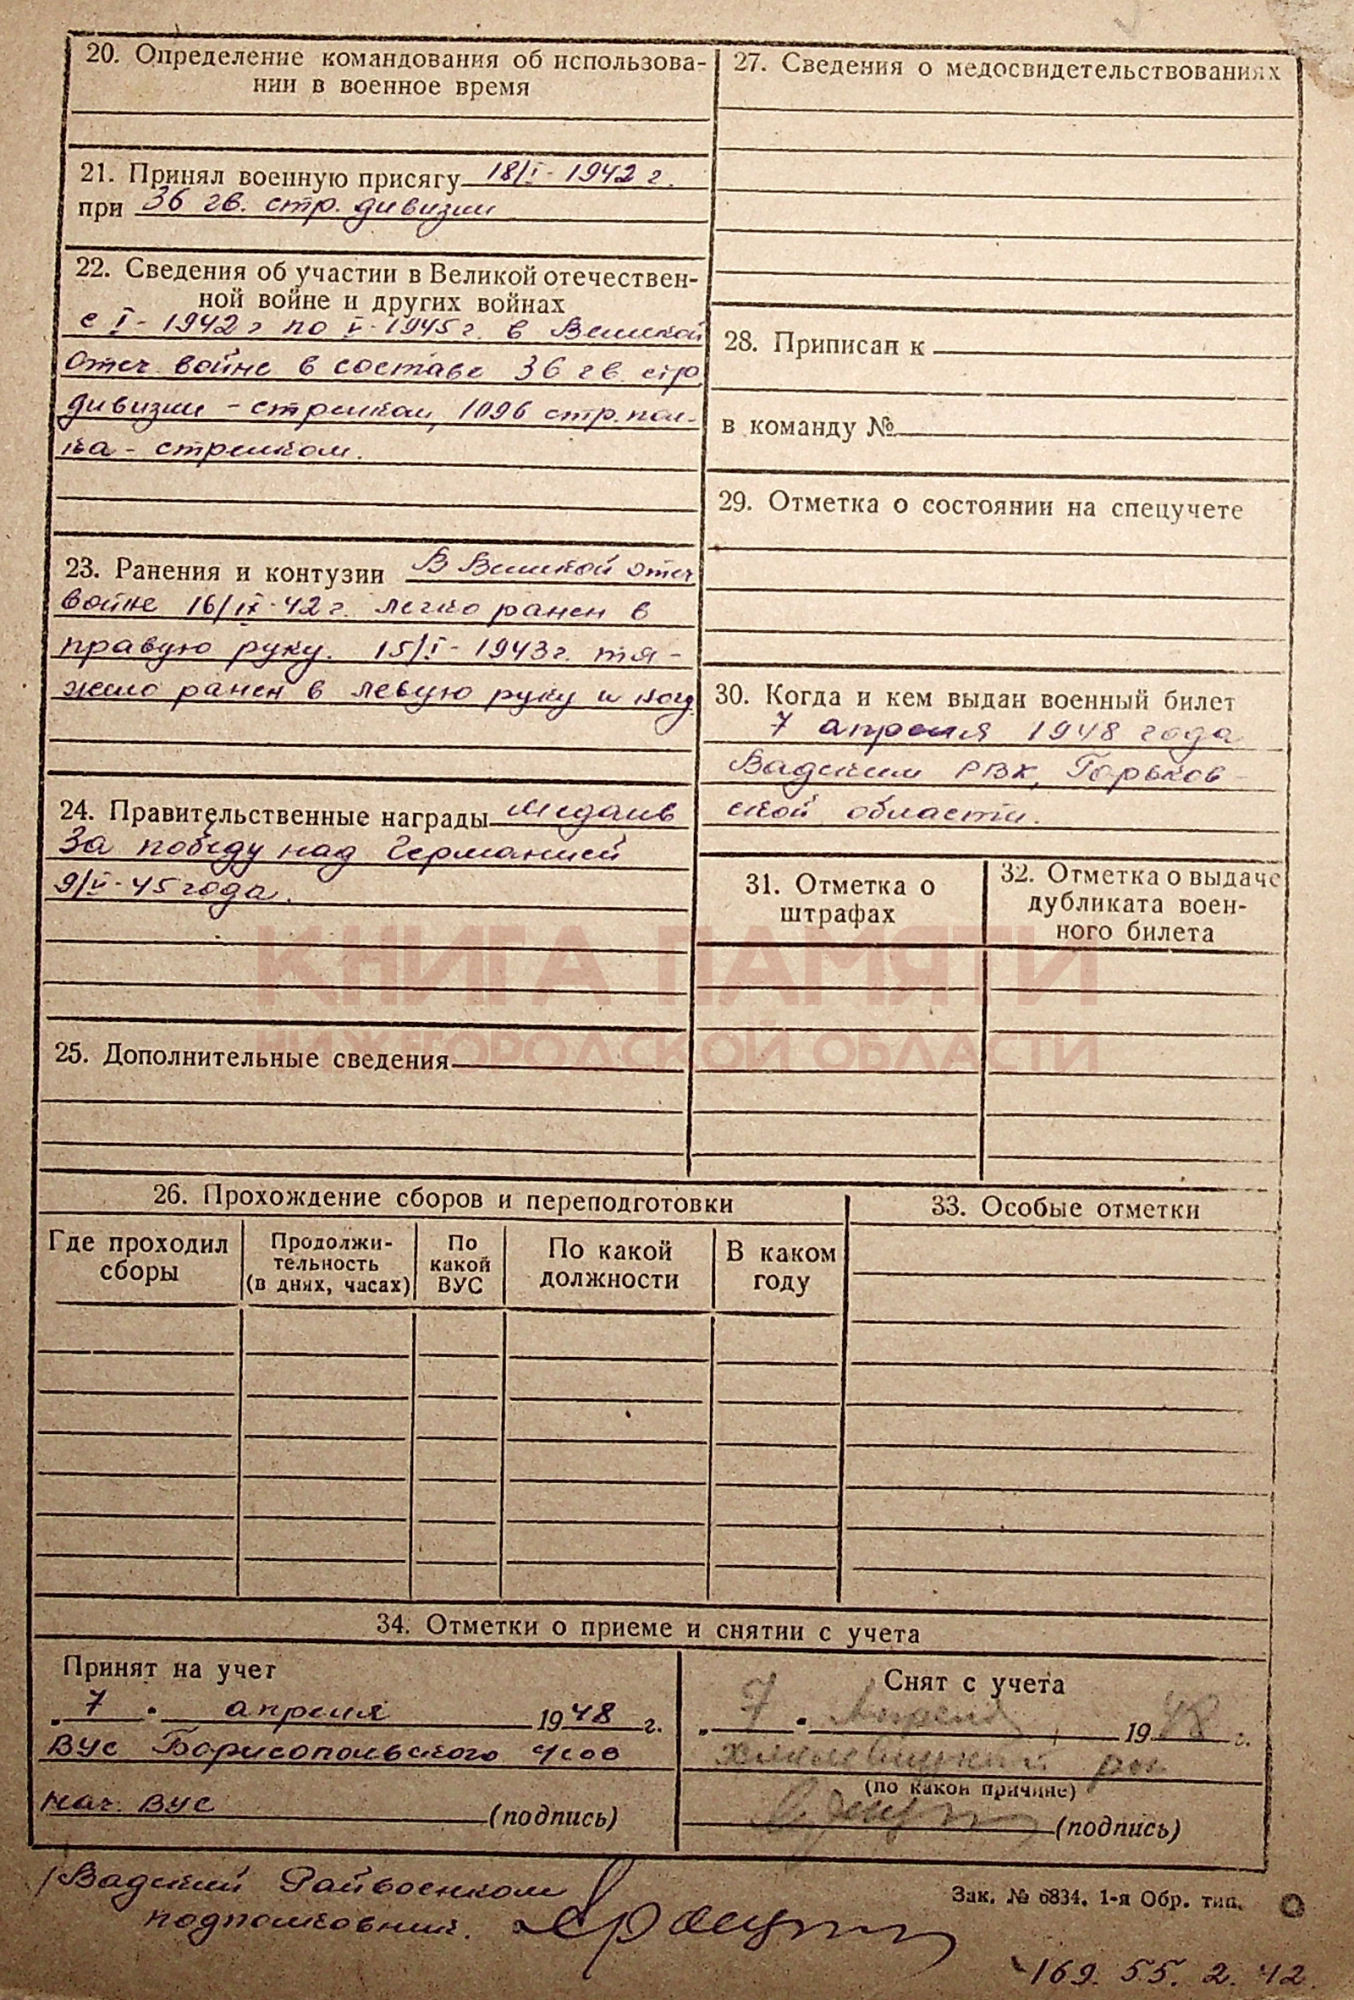 20. Определение командования об использова-
нии в военное время
21. Принял военную присягу 18/I-1942 г.
при 36 гв. стр. дивизии
22. Сведения об участии в Великой отечествен-
ной войне и других войнах
с I-1942 г по V-1945 г. в Великой
Отеч. войне в составе 36 гв. стр.
дивизии - стрелком, 1096 стр. пол-
ка - стрелком.
23. Ранения и контузии В Великой отеч
войне 16/IX-42 г. легко ранен в
правую руку. 15/I-1943 г. тя-
жело ранен в левую руку и ногу.
24. Правительственные награды Медаль
За победу над Германией
9/V-45 года.
25. Дополнительные сведения
27. Сведения о медосвидетельствованиях
28. Приписан к
в команду №
29. Отметка о состоянии на спецучете
30. Когда и кем выдан военный билет
7 апреля 1948 года
Вадским РВК, Горьков-
ской области.
31. Отметка о
штрафах
32. Отметка о выдаче
дубликата воен-
ного билета
КНИГА ПАМЯТИ
НИЖЕГОРОДСКОЙ ОБЛАСТИ
26. Прохождение сборов и переподготовки
Где проходил
сборы
Продолжи-
тельность
(в днях, часах)
По
какой
ВУС
По какой
должности
В каком
году
33. Особые отметки
34. Отметки о приеме и снятии с учета
Принят на учет
„ 7 " апреля 1948 г.
ВУС Борисопольского
Нач. ВУС (подпись)
Снят с учета
„ 7 " Апреля 1948 г.
(по какой причине)
(подпись)
Вадский Райвоенком
подполковник.
Зак. № 6834. 1-я Обр. тип.
169. 55. 2. 42.